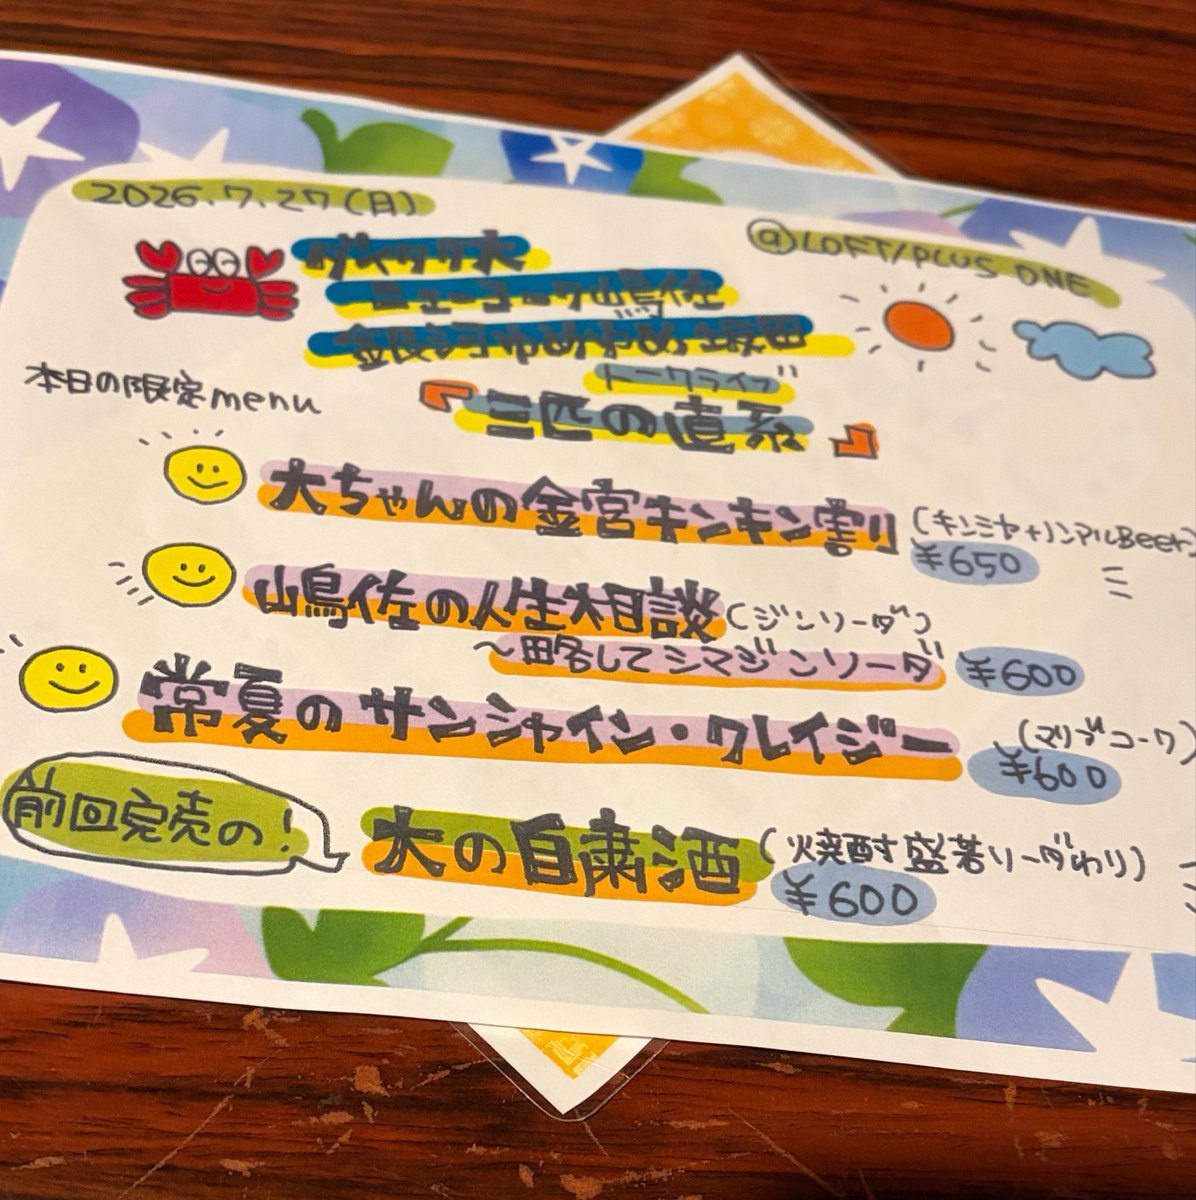 2026.7.27(月)
@LOFT/PLUS ONE
ダイヤモンド大
ニューヨーク山鳥佐
金段ヨヲゆめゆめ塚田
トークライブ
本日の限定menu
『三匹の直系』
大ちゃんの金宮キンキン割り
(キンミヤ+ノンアルBeer)
¥650
山鳥佐の人生相談(ジンソーダ)
〜略してシマジンソーダ ¥600
常夏のサンシャイン・クレイジー
(マリブコーク)
¥600
前回完売の!
大の自粛酒
(焼酎す盛若ソーダわり)
¥600